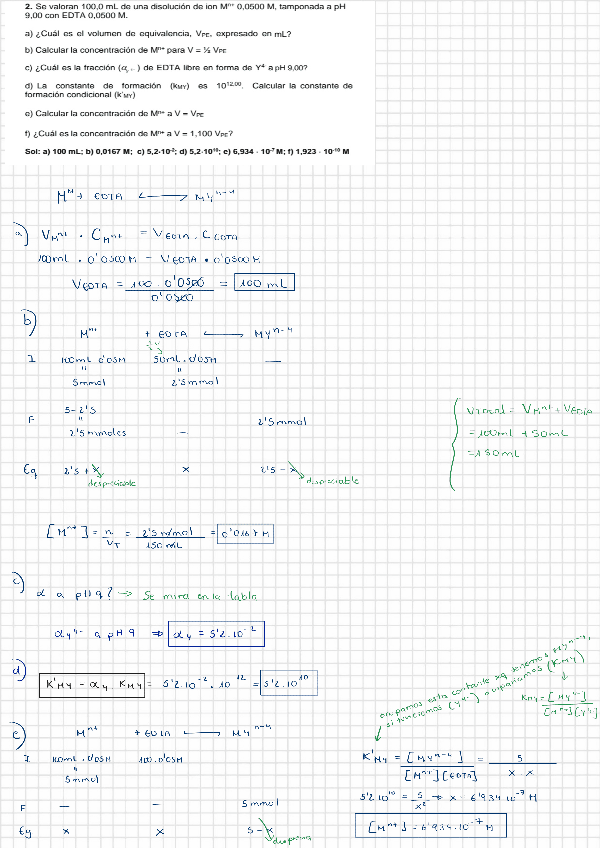 2. Se valoran 100,0 mL de una disolución de ion Mⁿ⁺ 0,0500 M, tamponada a pH
9,00 con EDTA 0,0500 M.
a) ¿Cuál es el volumen de equivalencia, V_PE, expresado en mL?
b) Calcular la concentración de Mⁿ⁺ para V = ½ V_PE
c) ¿Cuál es la fracción (α_Y⁴⁻) de EDTA libre en forma de Y⁴ a pH 9,00?
d) La constante de formación (k_MY) es 10^12,00. Calcular la constante de
formación condicional (k'_MY)
e) Calcular la concentración de Mⁿ⁺ a V = V_PE
f) ¿Cuál es la concentración de Mⁿ⁺ a V = 1,100 V_PE?
Sol: a) 100 mL; b) 0,0167 M; c) 5,2·10⁻²; d) 5,2·10¹⁰; e) 6,934 · 10⁻⁷ M; f) 1,923 · 10⁻¹⁰ M
Mⁿ + EDTA ⟷ MYⁿ⁻⁴
a) V_Mⁿ⁺ · C_Mⁿ⁺ = V_EDTA · C_EDTA
100mL · 0'0500M = V_EDTA · 0'0500M
V_EDTA = 100 · 0'0500 / 0'0500 = 100 mL
b)
Mⁿ⁺ + EDTA ⟷ MYⁿ⁻⁴
I 100mL · 0'05M 50mL · 0'05M —
5mmol 2'5mmol
F 5-2'5 — 2'5mmol
2'5mmoles
Eq 2'5 + x x 2'5 - x
despreciable despreciable
V total = V_Mⁿ⁺ + V_EDTA
= 100mL + 50mL
= 150mL
[Mⁿ⁺] = n / V_T = 2'5 mmol / 150 mL = 0'0167 M
c)
α a pH 9? → Se mira en la tabla
α_Y⁴⁻ a pH 9 ⇒ α_4 = 5'2·10⁻²
d)
K'_MY = α_4 · K_MY = 5'2·10⁻² · 10¹² = 5'2·10¹⁰
K_MY = [MY⁻⁴] / [Mⁿ⁺][Y⁴⁻]
e)
Mⁿ⁺ + EDTA ⟷ MYⁿ⁻⁴
I 100mL · 0'05M 100·0'05M
5mmol
F — — 5mmol
Eq x x 5 - x
K'_MY = [MYⁿ⁻⁴] / [Mⁿ⁺][EDTA] = 5 / x · x
5'2·10¹⁰ = 5 / x² ⇒ x = 6'934·10⁻⁷ M
[Mⁿ⁺] = 6'934·10⁻⁷ M